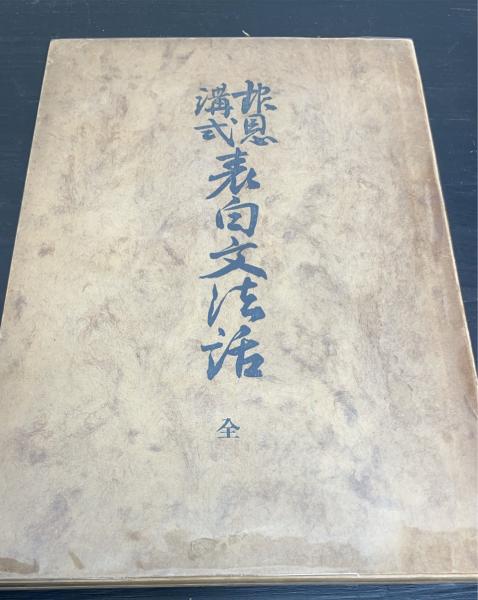 報恩
講式
表白文法話
全